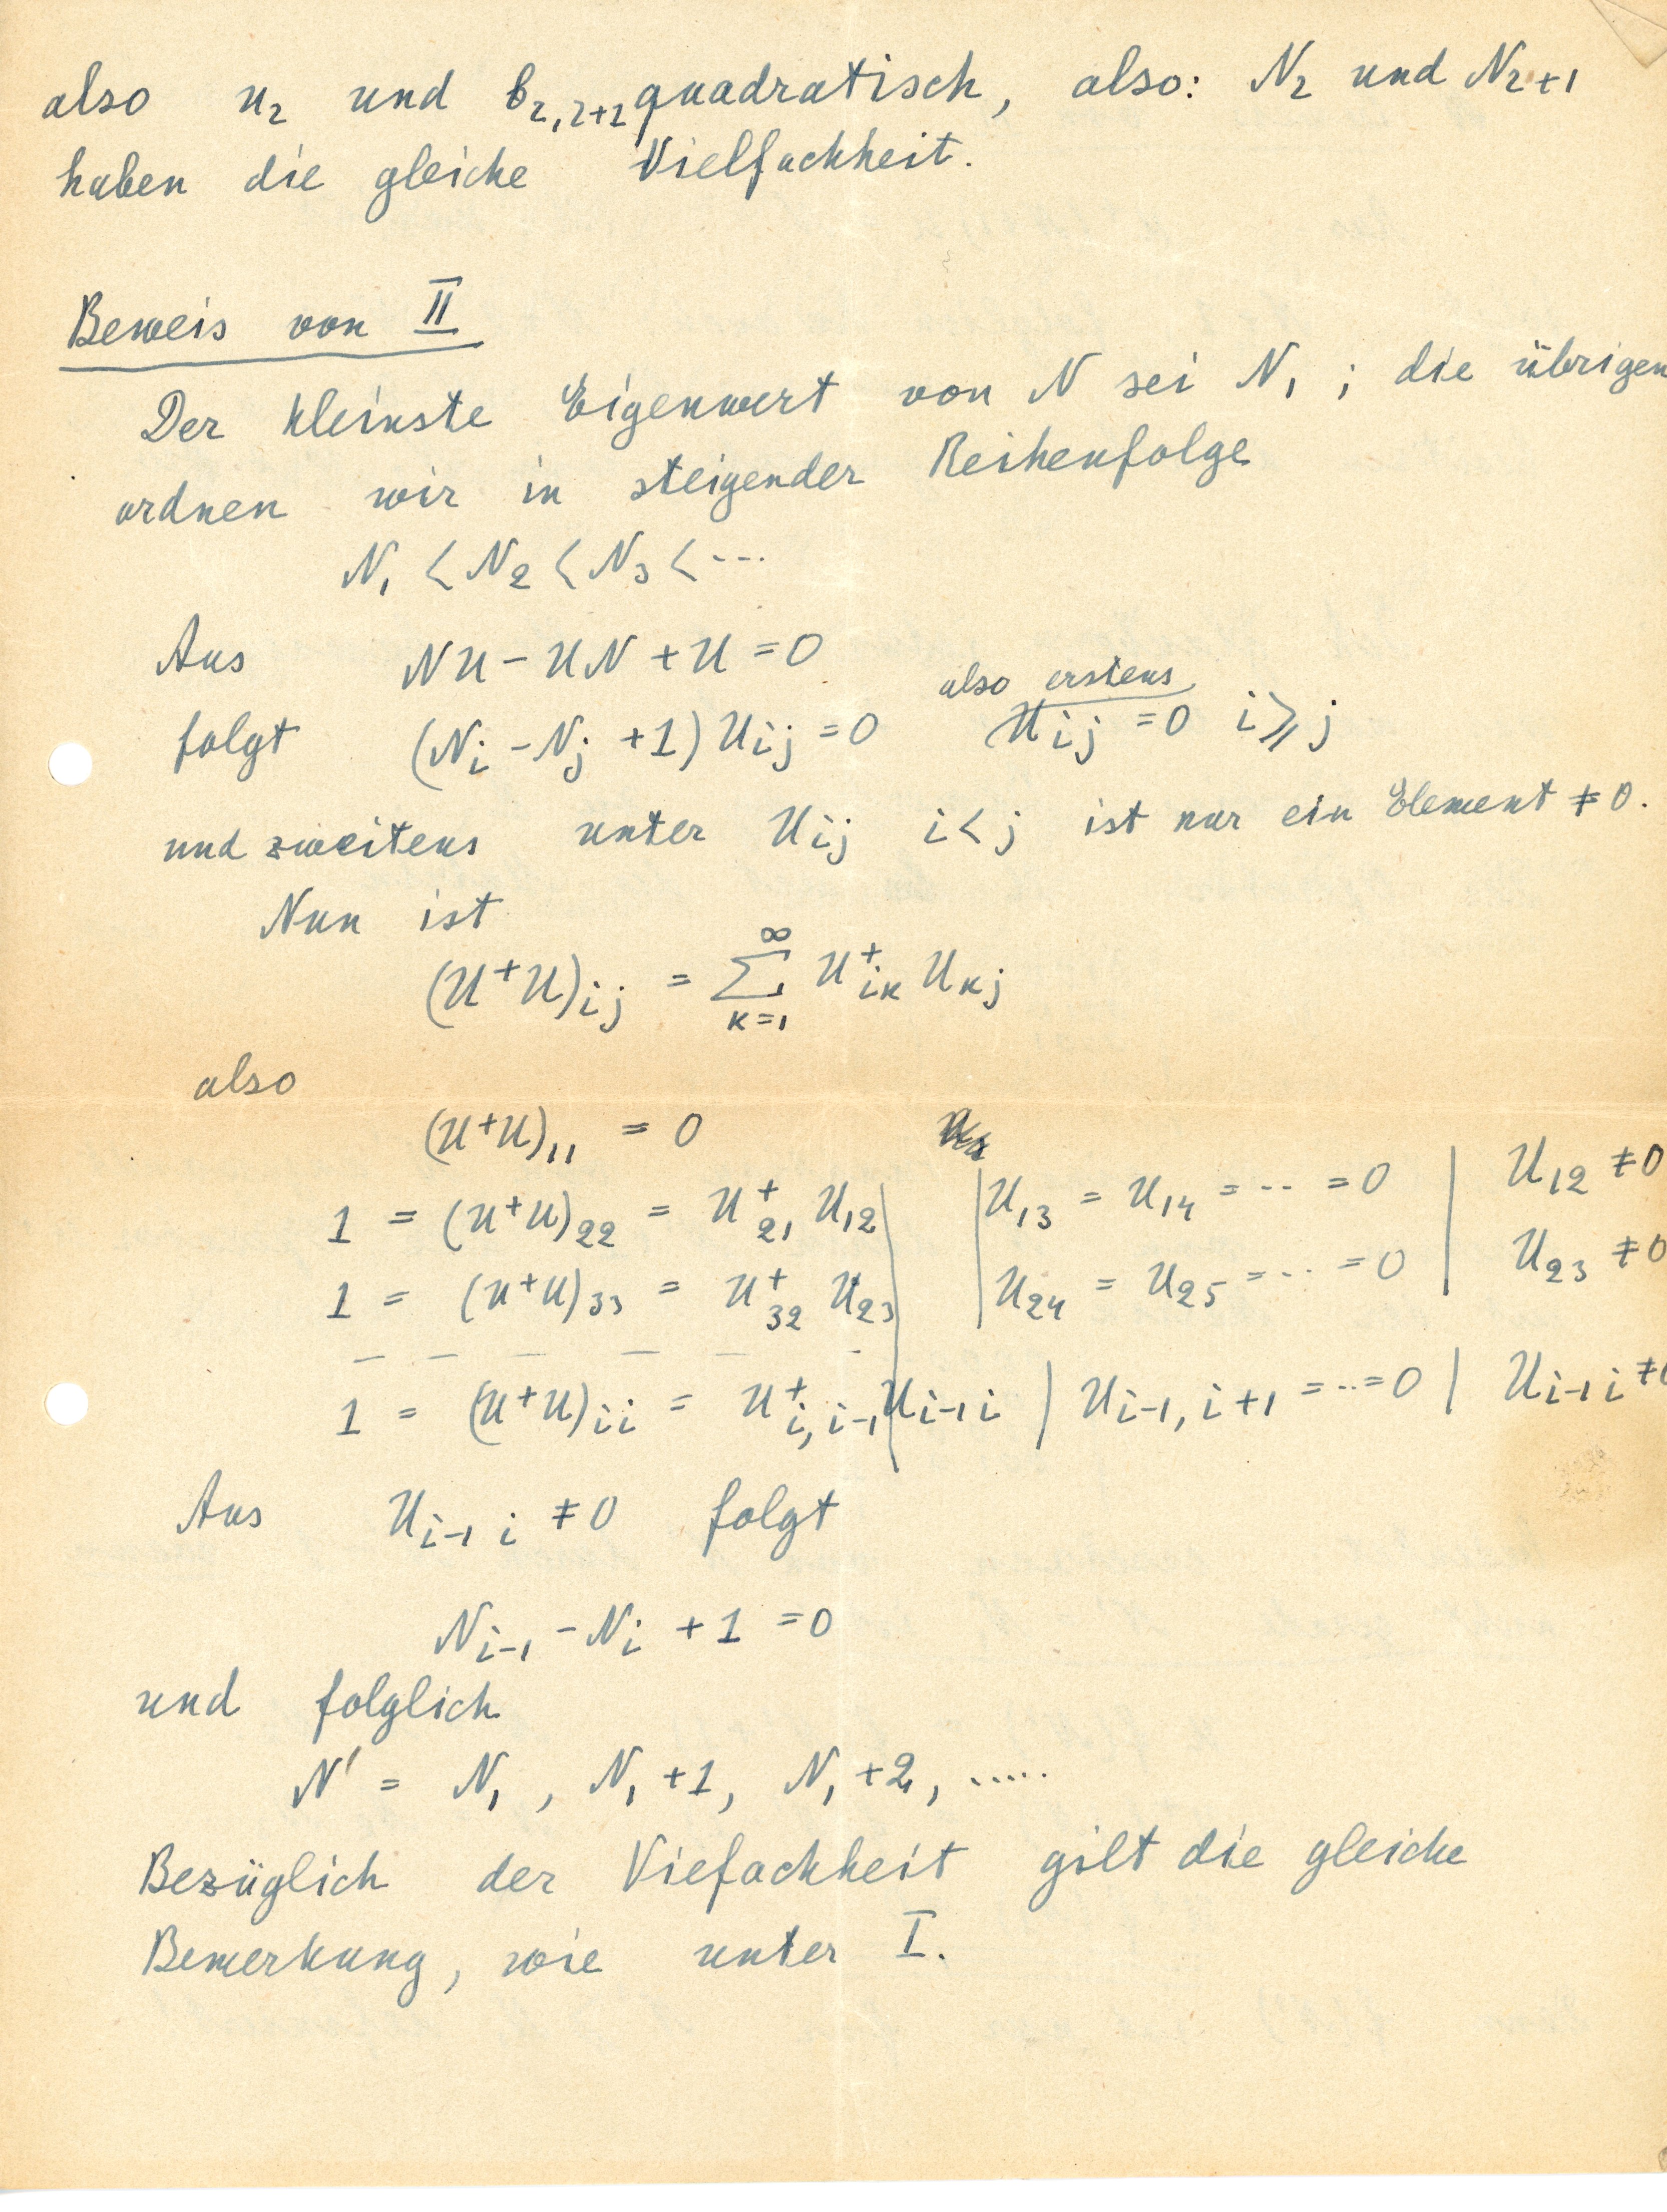 also u₂ und b₂,₂₊₂ quadratisch, also: N₂ und N₂₊₁
haben die gleiche Vielfachheit.
Beweis von II
Der kleinste Eigenwert von N sei N₁ ; die übrigen
ordnen wir in steigender Reihenfolge
N₁ < N₂ < N₃ < ---
Aus NU - UN + U = 0
also erstens
folgt (N_i - N_j + 1) U_ij = 0 U_ij = 0 i ≥ j
und zweitens unter U_ij i < j ist nur ein Element ≠ 0.
Nun ist
(U⁺U)_ij = ∑_{k=1}^{∞} U⁺_ik U_kj
also
(U⁺U)₁₁ = 0
1 = (U⁺U)₂₂ = U⁺₂₁ U₁₂ | | U₁₃ = U₁₄ = -- = 0 | U₁₂ ≠ 0
1 = (U⁺U)₃₃ = U⁺₃₂ U₂₃ | | U₂₄ = U₂₅ = -- = 0 | U₂₃ ≠ 0
— — — — — -
1 = (U⁺U)_ii = U⁺_i,i-1 U_i-1 i | U_i-1, i+1 = -- = 0 | U_i-1 i ≠ 0
Aus U_i-1 i ≠ 0 folgt
N_i-1 - N_i + 1 = 0
und folglich
N' = N₁ , N₁ + 1, N₁ + 2, .....
Bezüglich der Viefachheit gilt die gleiche
Bemerkung, wie unter I.